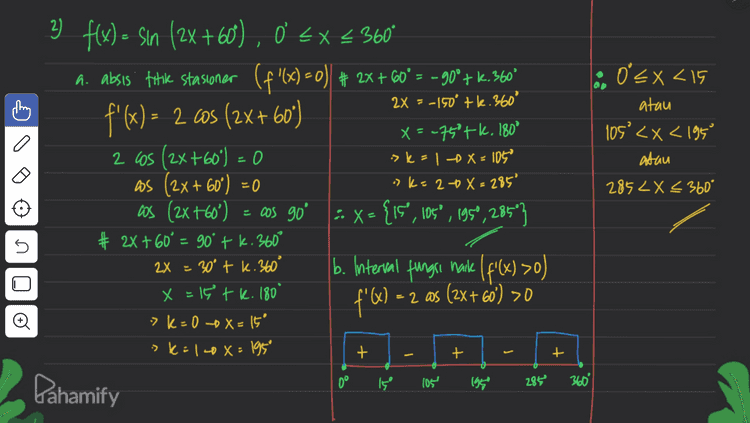 2) f(x) = sin (2x + 60°) , 0° ≤ x ≤ 360°
a. absis titik stasioner (f'(x) = 0)
f'(x) = 2 cos (2x + 60°)
2 cos (2x + 60°) = 0
cos (2x + 60°) = 0
cos (2x + 60°) = cos 90°
# 2x + 60° = 90° + k.360°
2x = 30° + k.360°
x = 15° + k.180°
> k = 0 → x = 15°
> k = 1 → x = 195°
# 2x + 60° = -90° + k.360°
2x = -150° + k.360°
x = -75° + k.180°
> k = 1 → x = 105°
> k = 2 → x = 285°
∴ x = {15°, 105°, 195°, 285°}
b. Interval fungsi naik (f'(x) > 0)
f'(x) = 2 cos (2x + 60°) > 0
+ - + - +
0° 15° 105° 195° 285° 360°
∴ 0° ≤ x < 15
atau
105° < x < 195°
atau
285 < x ≤ 360°
Pahamify